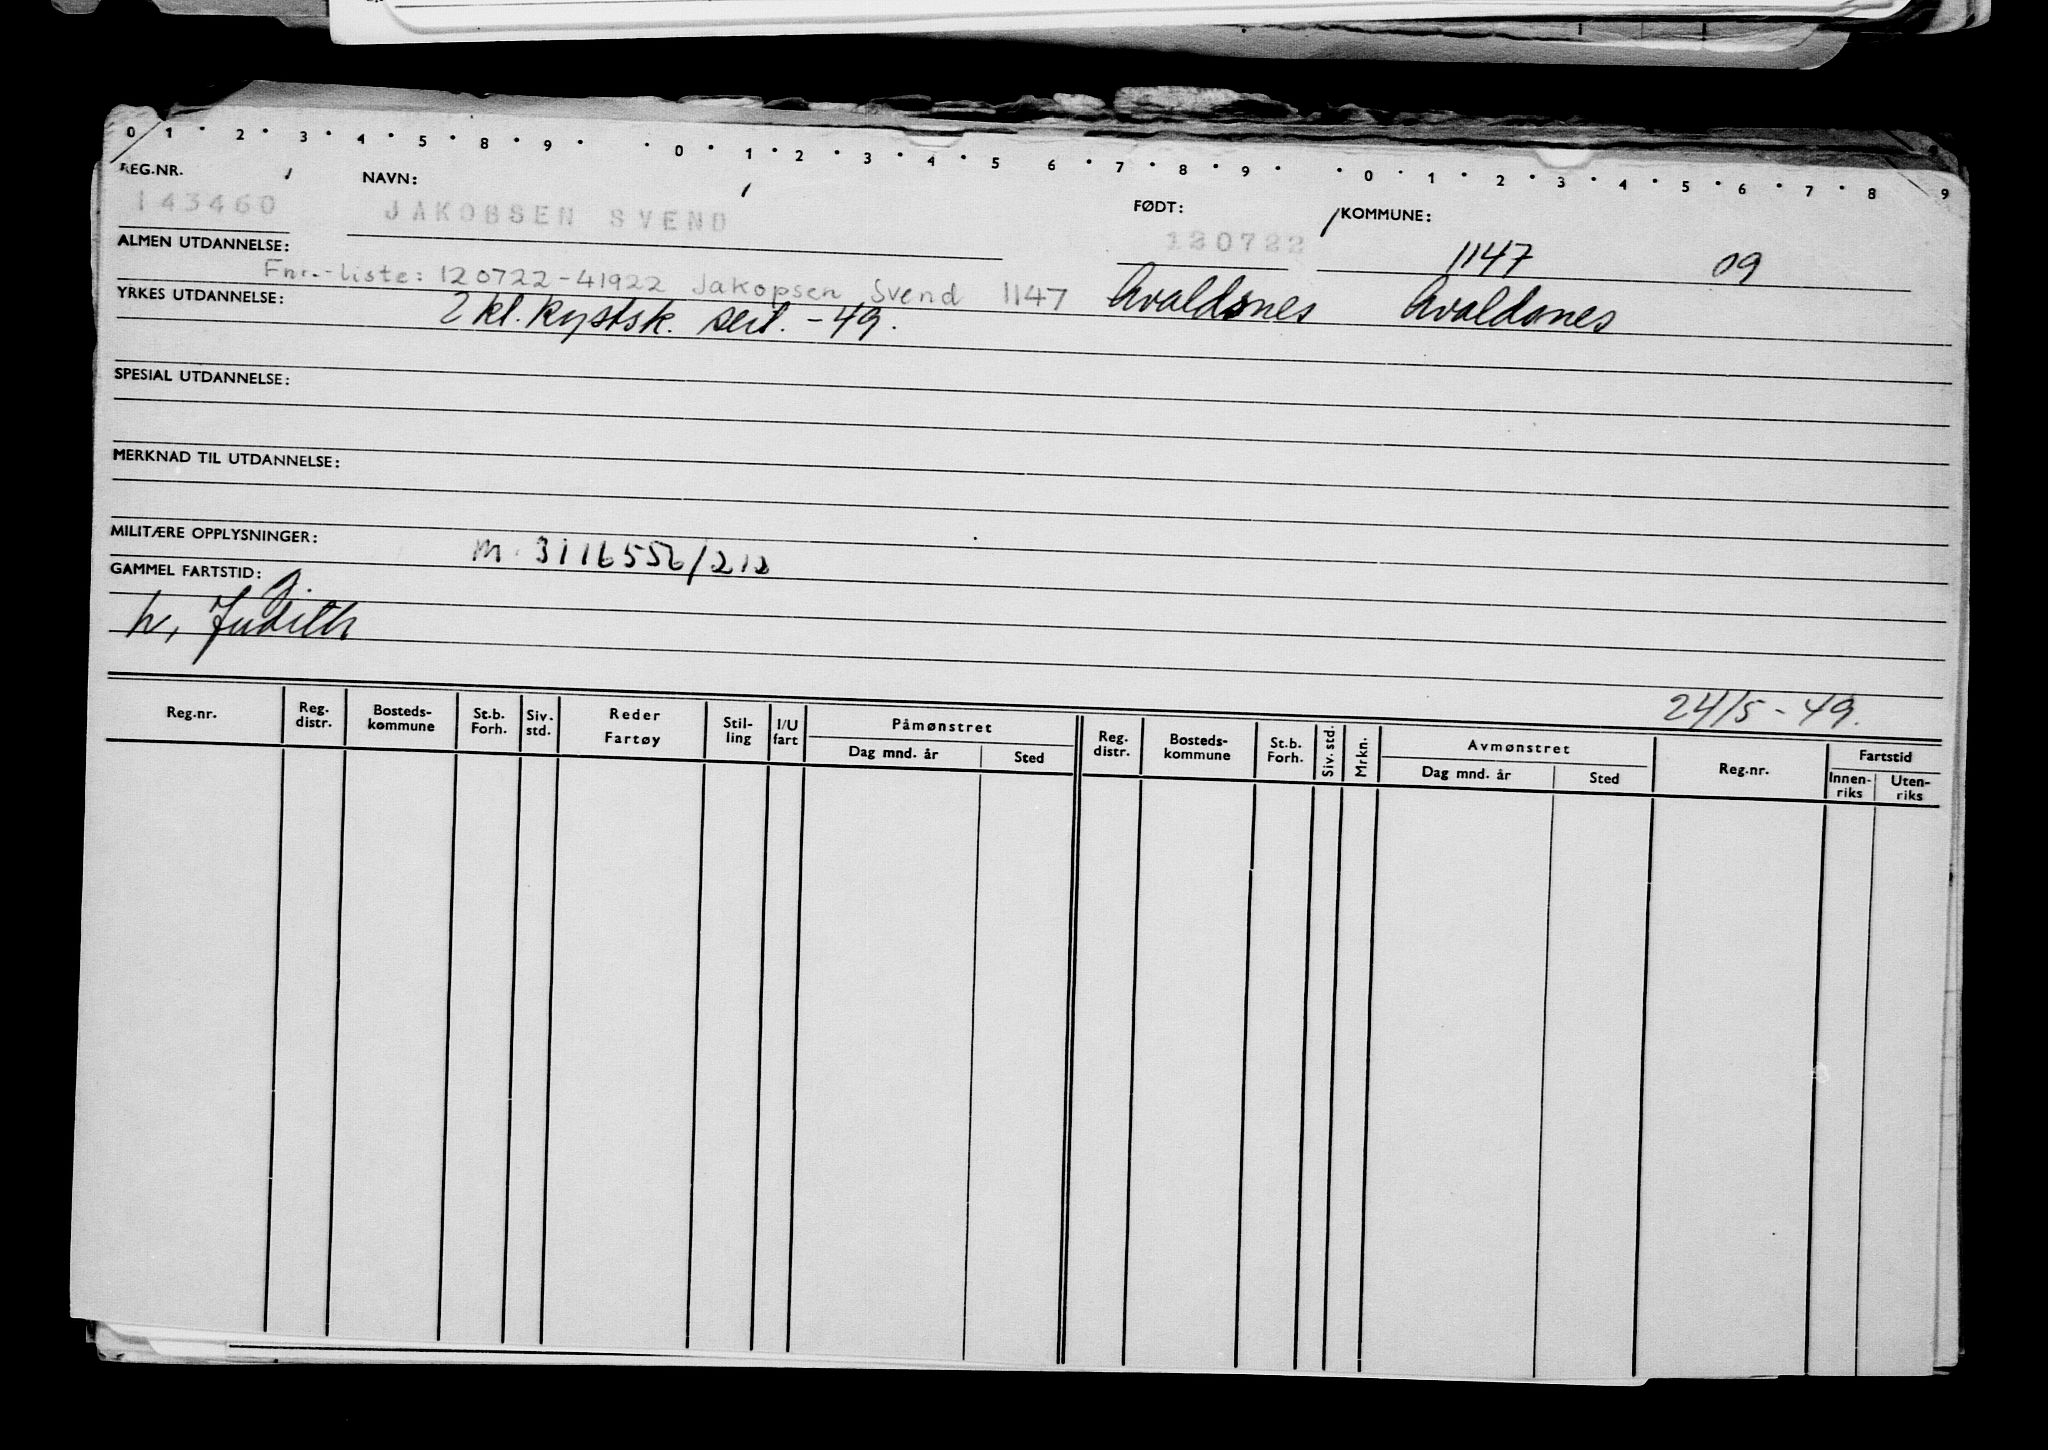 0 1 • 2 • 3 • 4 • 5 • 8 • 9 • • 0 • 1 • 2 • 3 • 4 • 5 6 • 7 • 8 • 9 • • 0 • 1 • 2 • 3 • 4 • 5 • 6 • 7 • 8 9
REG.NR. NAVN: FØDT: KOMMUNE:
143460 JAKOBSEN SVEND 120722 1147 09
ALMEN UTDANNELSE:
Fnr.-liste: 120722-41922 Jakopsen Svend 1147 Avaldsnes Avaldsnes
YRKES UTDANNELSE: 2 kl. kystsk. seil. -49.
SPESIAL UTDANNELSE:
MERKNAD TIL UTDANNELSE:
MILITÆRE OPPLYSNINGER: M. 3116556/212
GAMMEL FARTSTID:
h, Judith
24/5-49.
Reg.nr. Reg. distr. Bosteds-kommune St.b. Forh. Siv. std. Reder Fartøy Stil-ling I/U fart Påmønstret Dag mnd. år Sted Reg. distr. Bosteds-kommune St.b. Forh. Siv. std. Mrkn. Avmønstret Dag mnd. år Sted Reg.nr. Fartstid Innen-riks Uten-riks